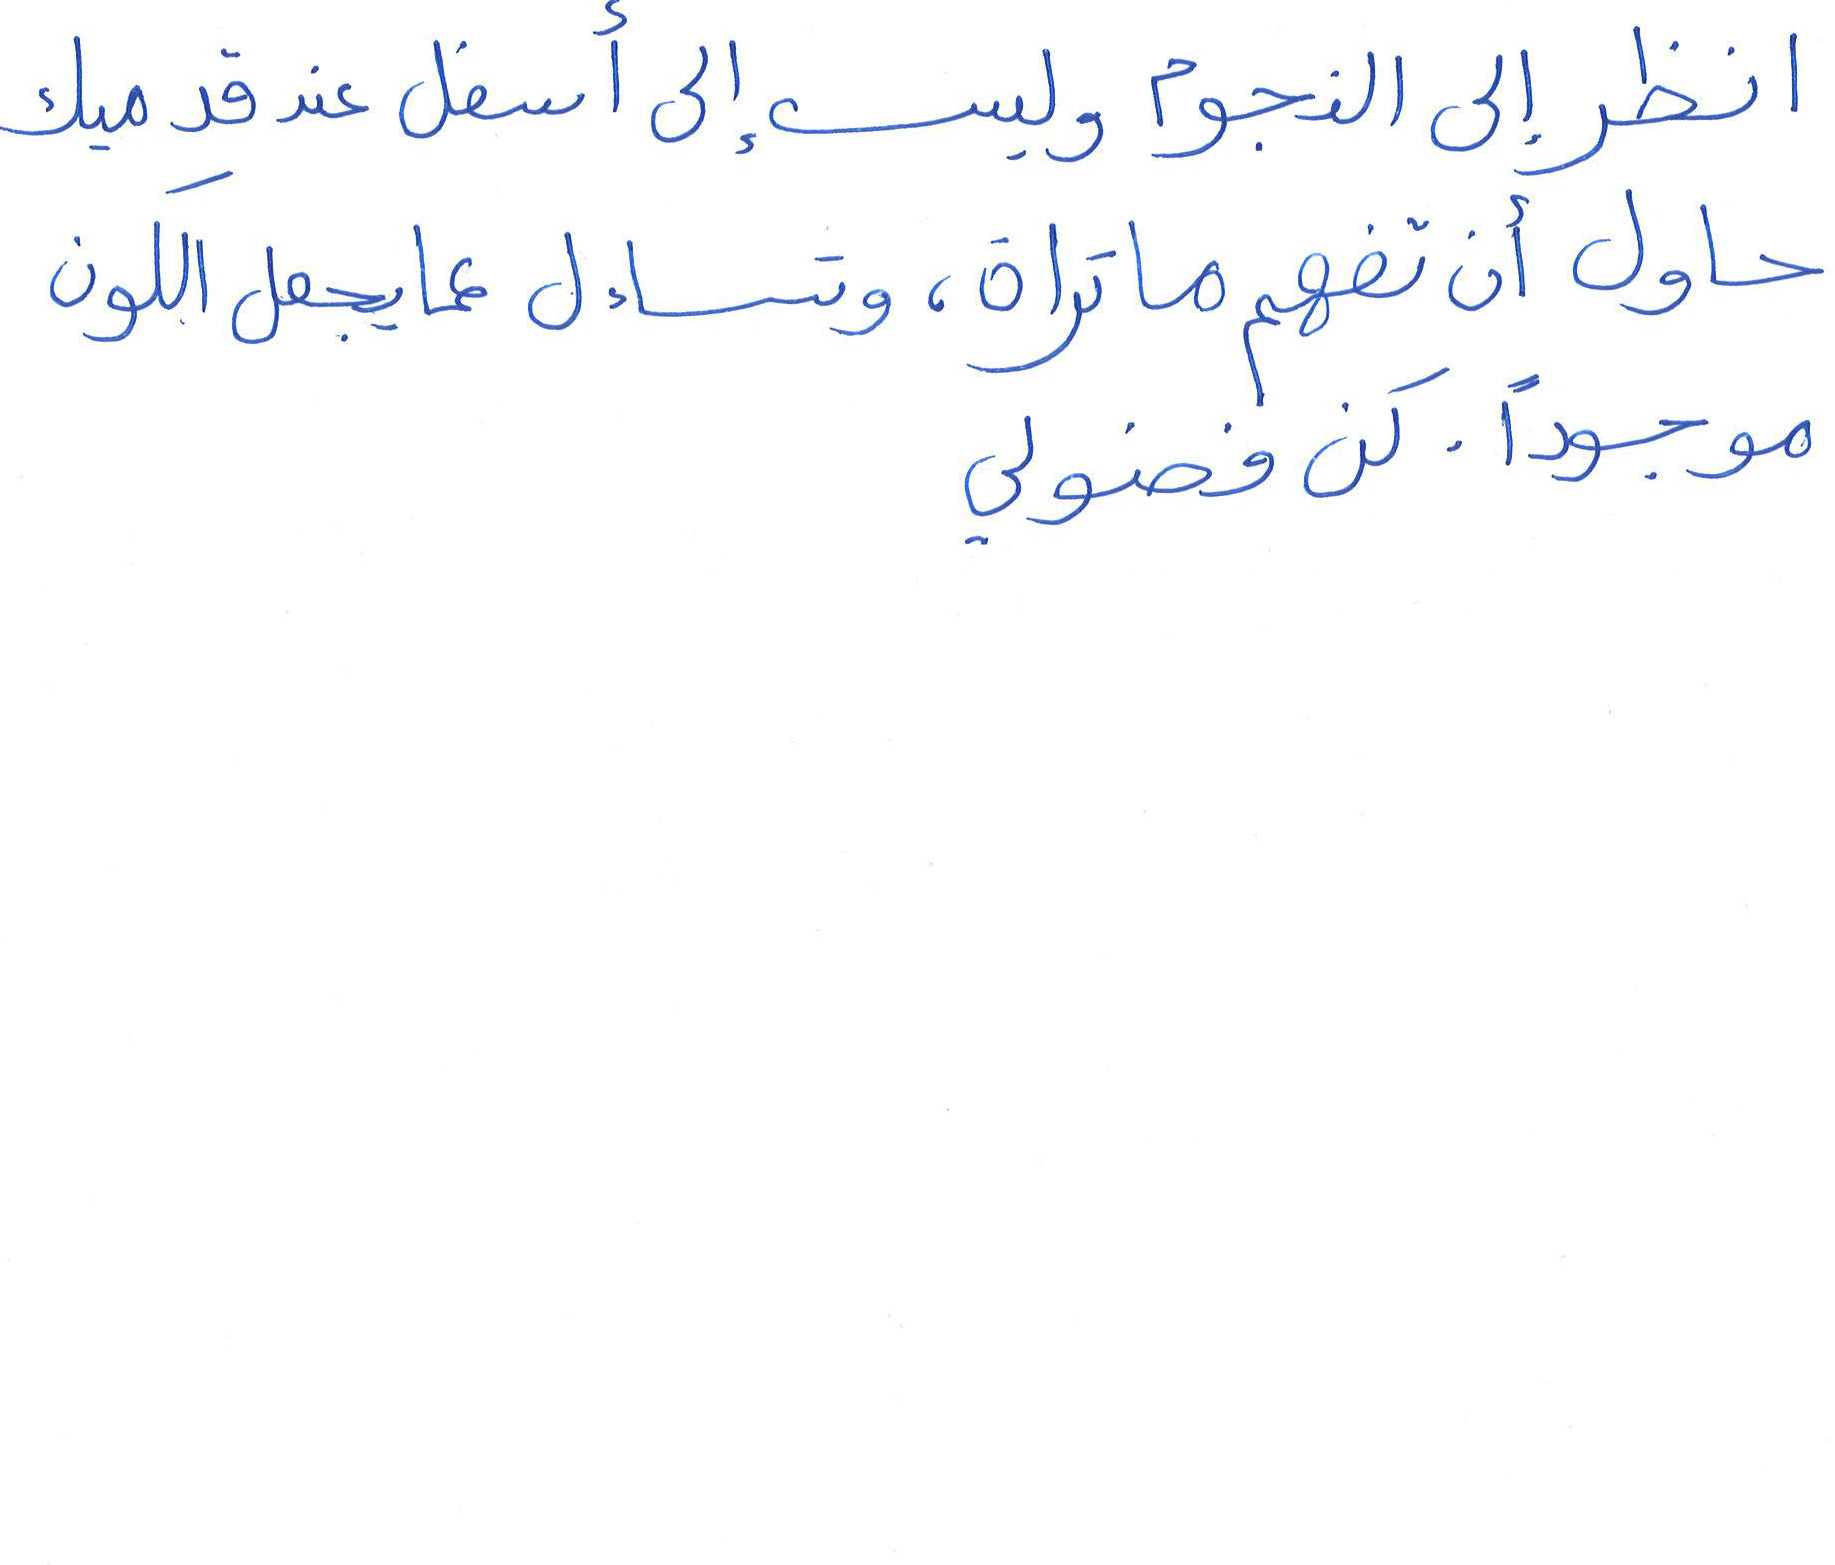 انظر إلى النجوم وليس إلى أسفل عند قدميك
حاول أن تفهم ما تراة، وتساءل عما يجعل اللون
موجوداً. كن فضولي